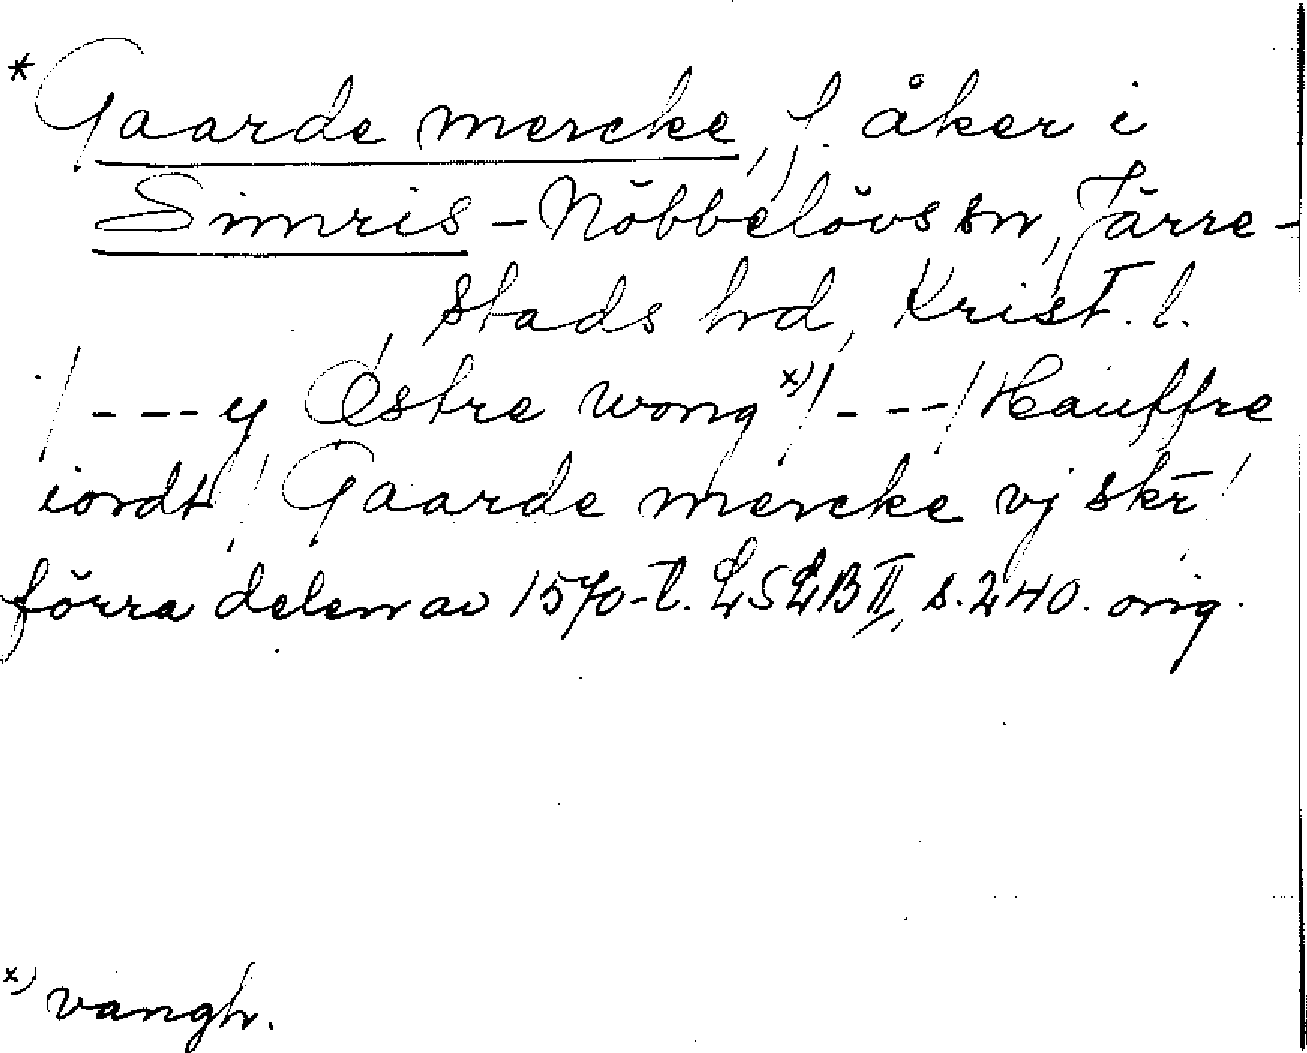 *Gaarde mercke, f. åker i
Simris-Nöbbelövs sn, Järre-
stads hrd, Krist. l.
/---y Østre wong x)/---/Hauffre
iordt/ Gaarde mercke vj skr̄/
förra delen av 1570-t. LSLB II, s. 240. orig.
x) vangh.